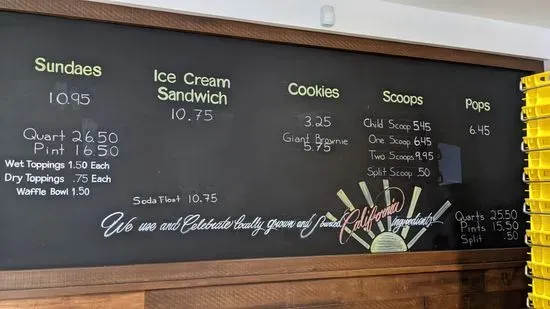 Sundaes
10.95
Quart 26.50
Pint 16.50
Wet Toppings 1.50 Each
Dry Toppings .75 Each
Waffle Bowl 1.50
Ice Cream
Sandwich
10.75
Soda Float 10.75
Cookies
3.25
Giant Brownie
5.75
Scoops
Child Scoop 5.45
One Scoop 6.45
Two Scoops 9.95
Split Scoop .50
Pops
6.45
Quarts 25.50
Pints 15.50
Split .50
We use and Celebrate locally grown and Sourced California Ingredients!